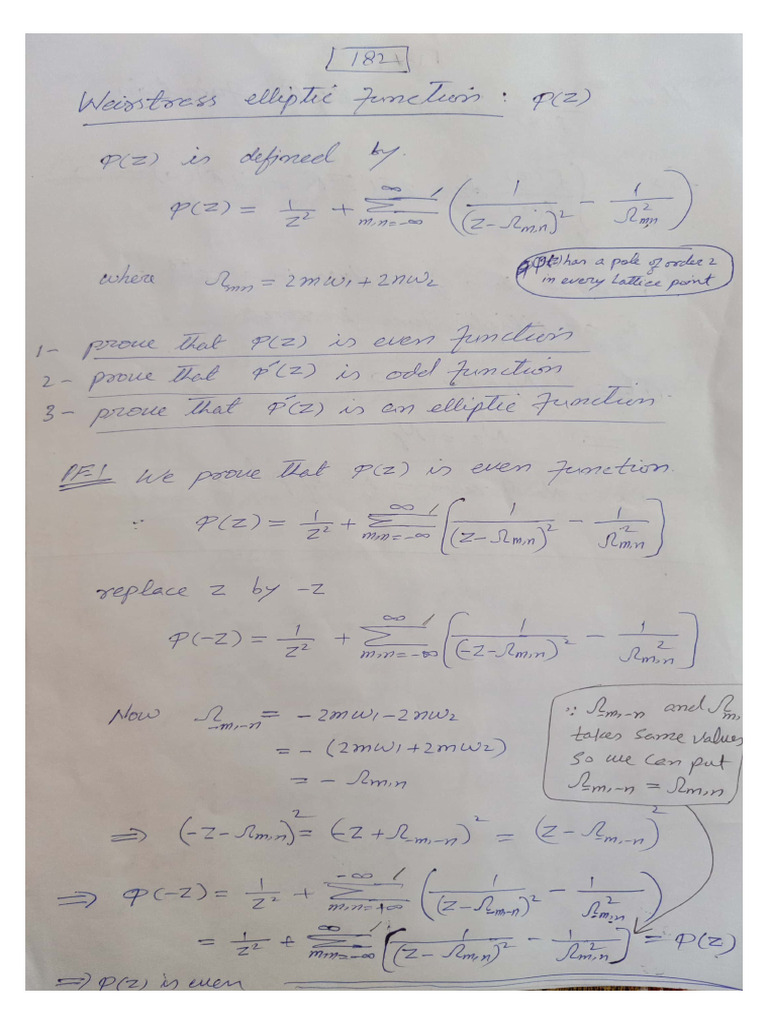 182
Weirstrass elliptic Function : ϕ(z)
ϕ(z) is defined by.
ϕ(z) = 1/z² + ∑'_{m,n=-∞}^{∞} ( 1/(z-Ω_{m,n})² - 1/Ω²_{m,n} )
where Ω_{mn} = 2mω₁ + 2nω₂
ϕ(z) has a pole of order 2
in every Lattice point
1- prove that ϕ(z) is even function
2- prove that ϕ'(z) is odd function
3- prove that ϕ'(z) is an elliptic Function
PF=1 We prove that ϕ(z) is even function.
∵ ϕ(z) = 1/z² + ∑'_{m,n=-∞}^{∞} [ 1/(z-Ω_{m,n})² - 1/Ω²_{m,n} ]
replace z by -z
ϕ(-z) = 1/z² + ∑'_{m,n=-∞}^{∞} [ 1/(-z-Ω_{m,n})² - 1/Ω²_{m,n} ]
Now Ω_{-m,-n} = -2mω₁ - 2nω₂
= -(2mω₁ + 2mω₂)
= -Ω_{m,n}
∵ Ω_{-m,-n} and Ω_{m,
takes same values
so we can put
Ω_{-m,-n} = Ω_{m,n}
⇒ (-z-Ω_{m,n})² = (-z+Ω_{-m,-n})² = (z-Ω_{-m,-n})²
⇒ ϕ(-z) = 1/z² + ∑'_{m,n=+∞}^{-∞} ( 1/(z-Ω_{-m-n})² - 1/Ω²_{-m,-n} )
= 1/z² + ∑'_{m,n=-∞}^{∞} [ 1/(z-Ω_{m,n})² - 1/Ω²_{m,n} ] = ϕ(z)
⇒ ϕ(z) is even